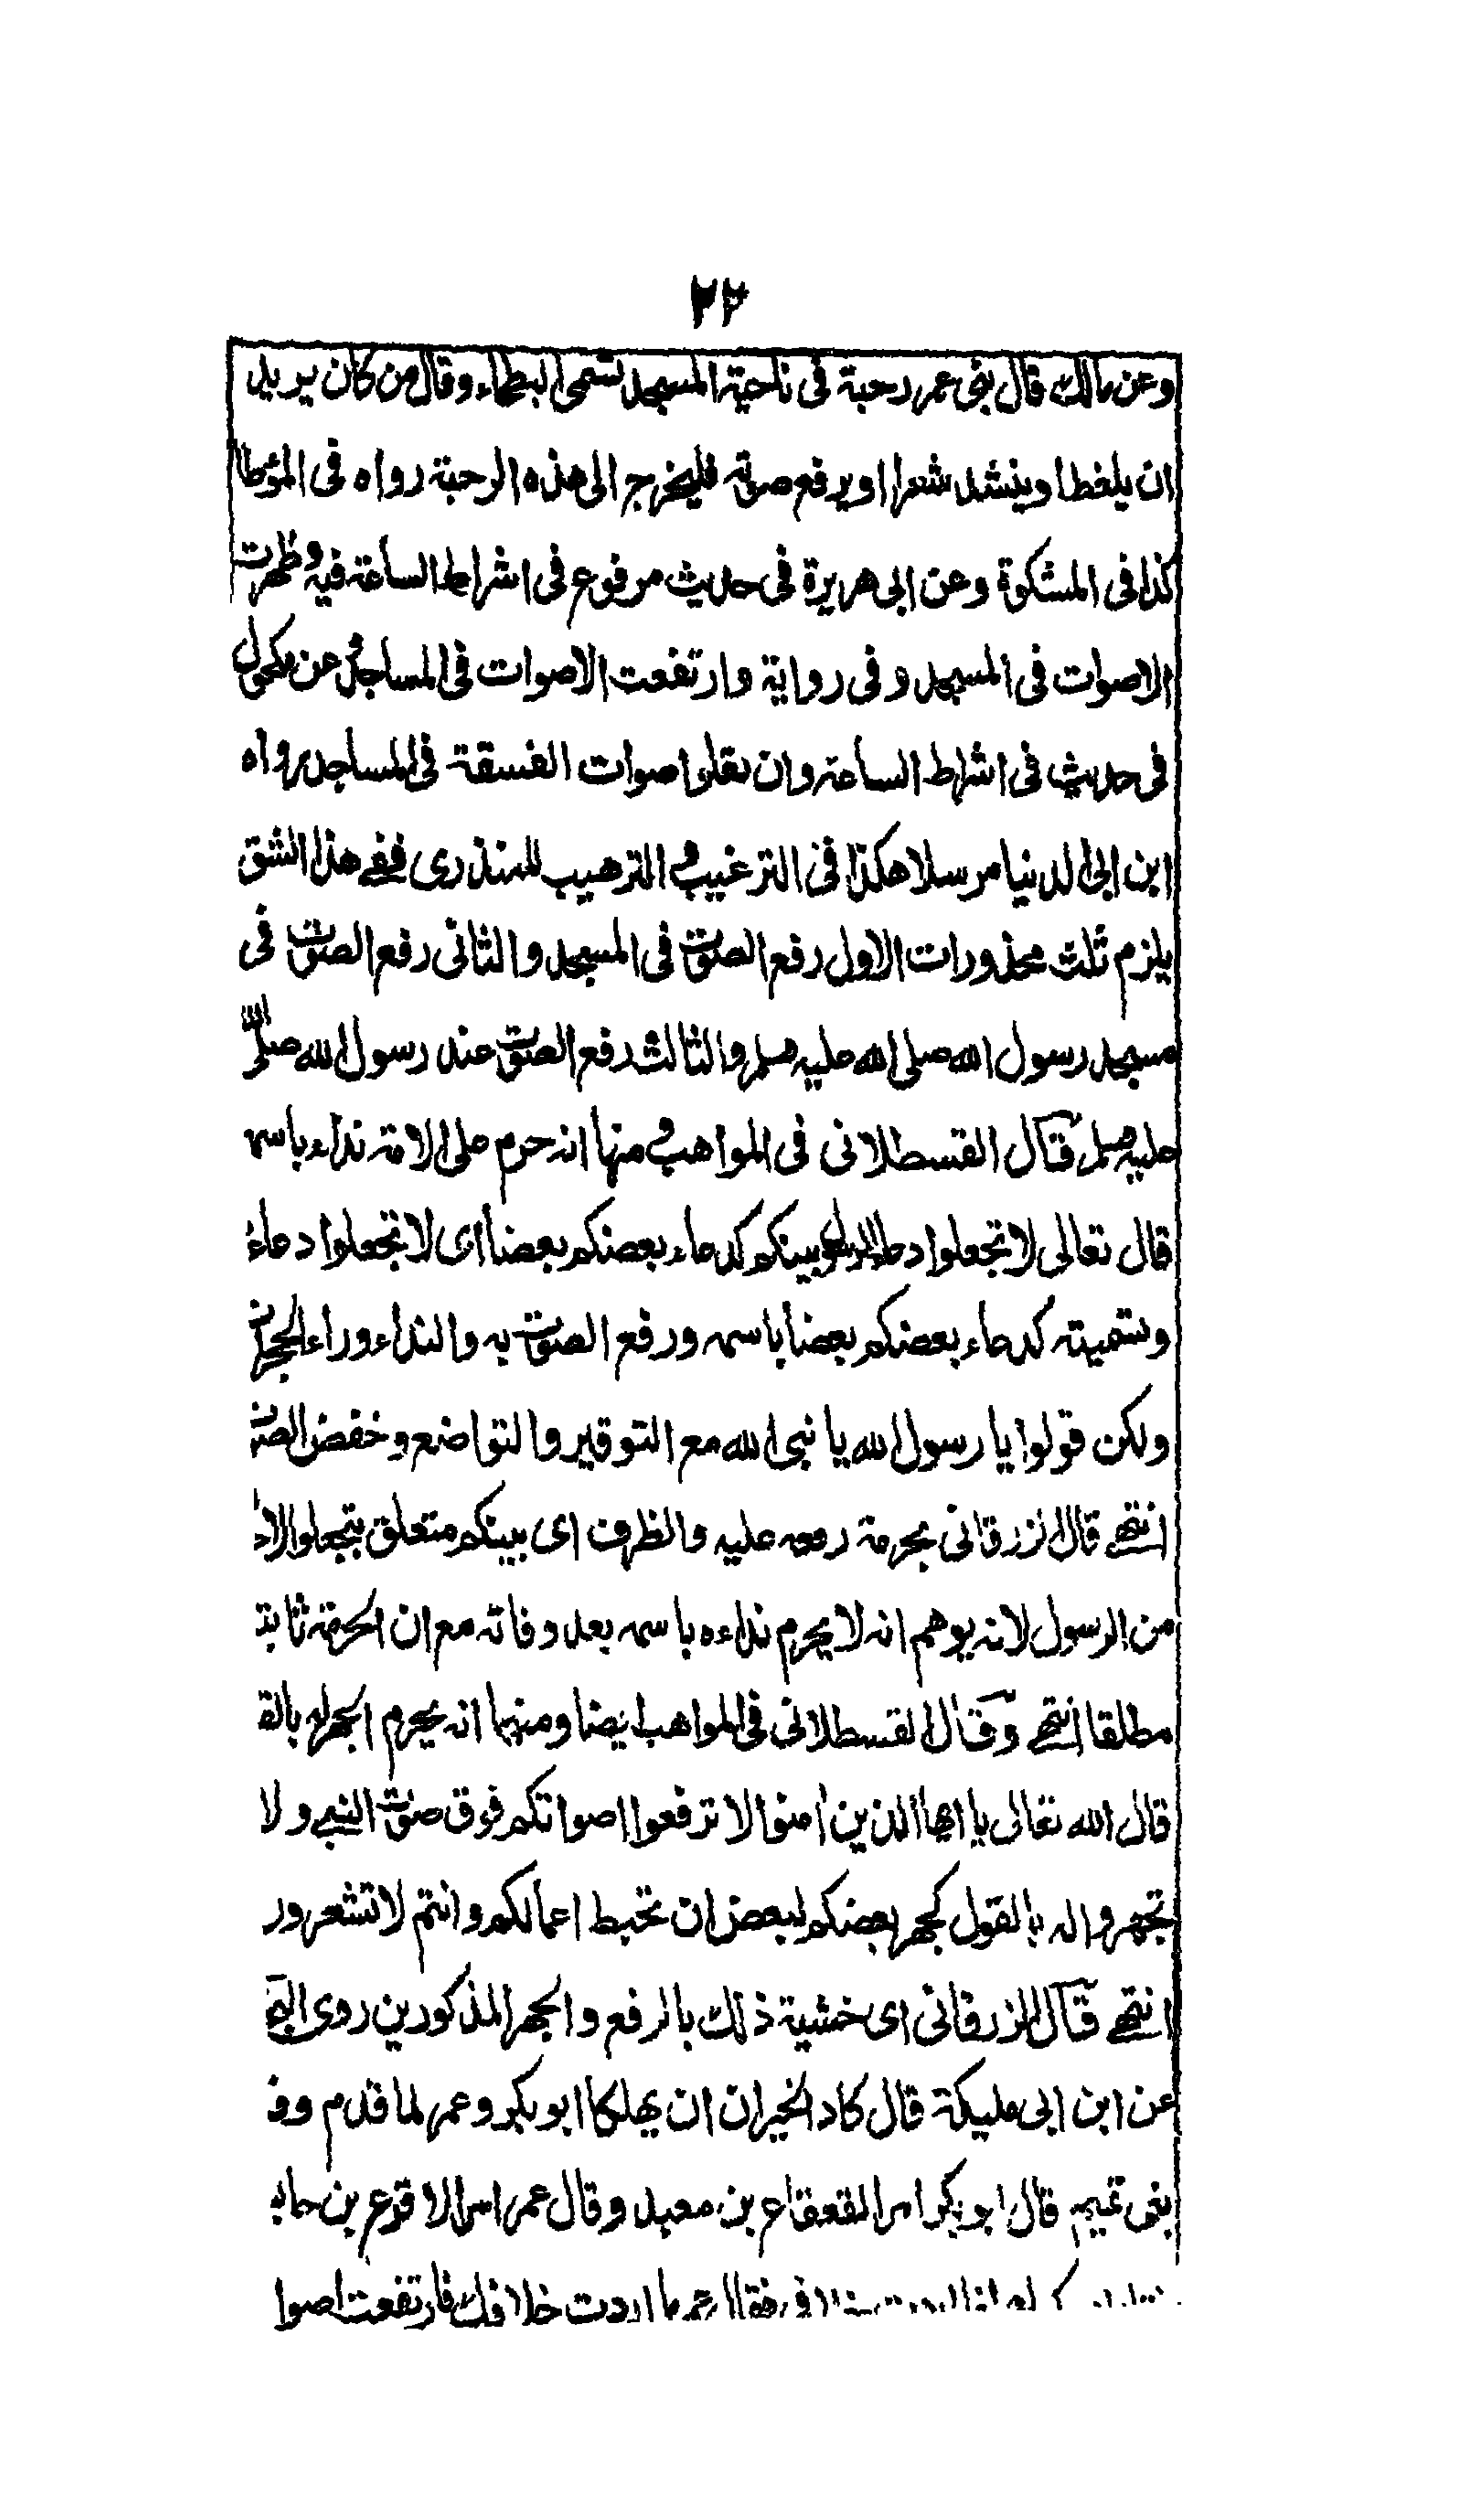 ٢٢
وعن مالك قال بنى عمر رحبة فى ناحية المسجد تسمى البطحاء وقال من كان يريد
ان يلغط او ينشد شعرا او يرفع صوته فليخرج الى هذه الرحبة رواه فى المؤطا
كذا فى المشكوة وعن ابى هريرة فى حديث مرفوع فى اشراط الساعة فيه وظهرت
الاصوات فى المسجد وفى رواية وارتفعت الاصوات فى المساجد وعن مكحول
فى حديث فى اشراط الساعة وان تعلوا صوات الفسقة فى المساجد رواه
ابن ابى الدنيا مرسلا هكذا فى الترغيب و الترهيب للمنذرى ففى هذا الشق
يلزم ثلث محذورات الاول رفع الصوت فى المسجد والثانى رفع الصوت فى
مسجد رسول الله صلى الله عليه وسلم والثالث رفع الصوت عند رسول الله صلى الله
عليه وسلم قال القسطلانى فى المواهب و منها انه حرم على الامة نداءه باسمه
قال تعالى لا تجعلوا دعاء الرسول بينكم كدعاء بعضكم بعضا اى لا تجعلوا دعاءه
وتسميته كدعاء بعضكم بعضا باسمه ورفع الصوت به والنداء وراء الحجرات
ولكن قولوا يا رسول الله يا نبى الله مع التوقير والتواضع وخفض الصوت
انتهى قال الزرقانى بحرمة رفعه عليه والظرف اى بينكم متعلق بتجعلوا لا
من الرسول لانه يوهم انه لا يحرم نداءه باسمه بعد وفاته مع ان الحرمة ثابتة
مطلقا انتهى وقال القسطلانى فى المواهب ايضا ومنها انه يحرم الجهر له بالق
قال الله تعالى يا ايها الذين امنوا لا ترفعوا اصواتكم فوق صوت النبى ولا
تجهروا له بالقول كجهر بعضكم لبعض ان تحبط اعمالكم وانتم لا تشعرور
انتهى قال الزرقانى اى خشية ذلك بالرفع والجهر المذكورين روى البخ
عن ابن ابى مليكة قال كاد الخيران ان يهلكا ابو بكر وعمر لما قدم وف
بنى تميم قال ابو بكر امر القعقاع بن معبد وقال عمر امر الاقرع بن حاب
ما اردت خلافك فارتفعت اصوا